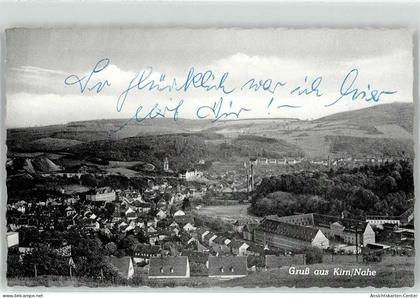 So glücklich war ich hier
mit Dir! –
Gruß aus Kirn/Nahe
www.ansichtskarten-center.de